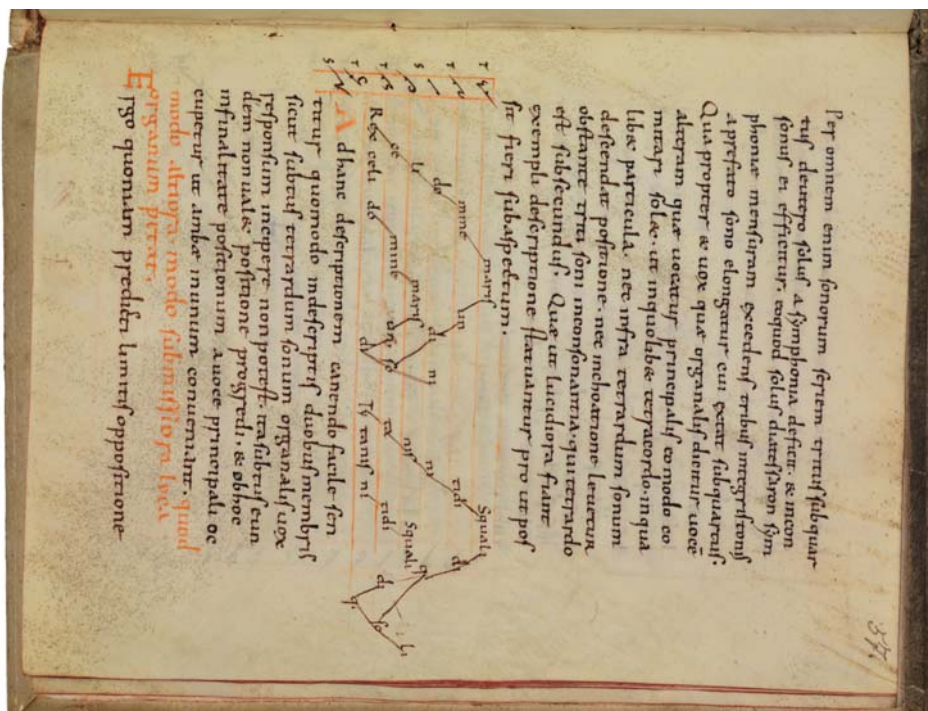 37.
Per omnem enim sonorum seriem tritus subquar
tus deutero solus a symphonia deficit. & incon
sonus ei efficitur. eoquod solus diatessaron sym
phoniae mensuram excedens tribus integris tonis
a prefato sono elongatur cui extat subquartus:
Quapropter & uox quae organalis dicitur uocē
alteram quae uocatur principalis eo modo co
mitari sol&. ut inquolib& tetracordo. inqua
lib& particula. nec infra tetrardum sonum
descendat positione. nec inchoatione leuetur
obstante triti soni inconsonantia. qui tetrardo
est subsecundus. Quae ut lucidiora fiant
exempli descriptione statuantur pro ut pos
sit fieri subaspectum.
T T S T T S
mine maris un Squali
do di tidi di
li ni ni
cę nis
Rex celi do mine maris so Ty ta Squali q
Tytanis ni tidi di so li
A dhanc descriptionem canendo facile sen
titur quomodo indescriptis duobus membris
sicut subtus tetrardum sonum organalis uox
responsum incipere non potest. ita subtus eun
dem non ual& positione progredi. & obhoc
infinalitate positionum a uoce principali oc
cupetur ut ambae inunum conueniant. quod
modo altiora. modo submissiora loca
organum petat.
E rgo quoniam predicti limitis oppositione